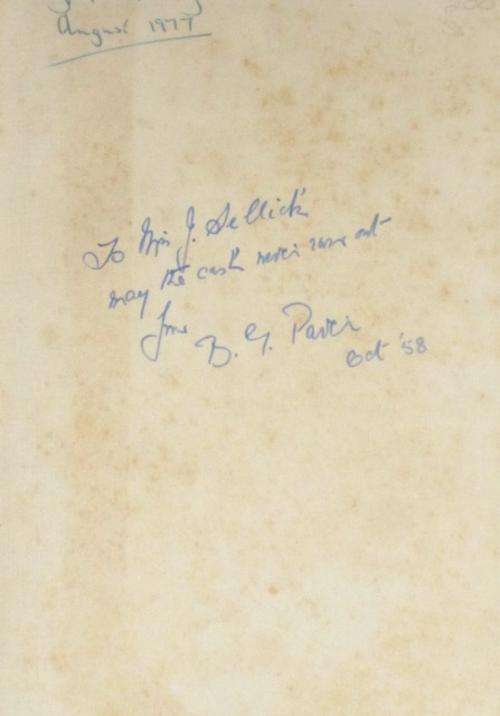 August 1977
To Miss J. Sellick
may the cash never run out
from B. G. Paver
Oct '58